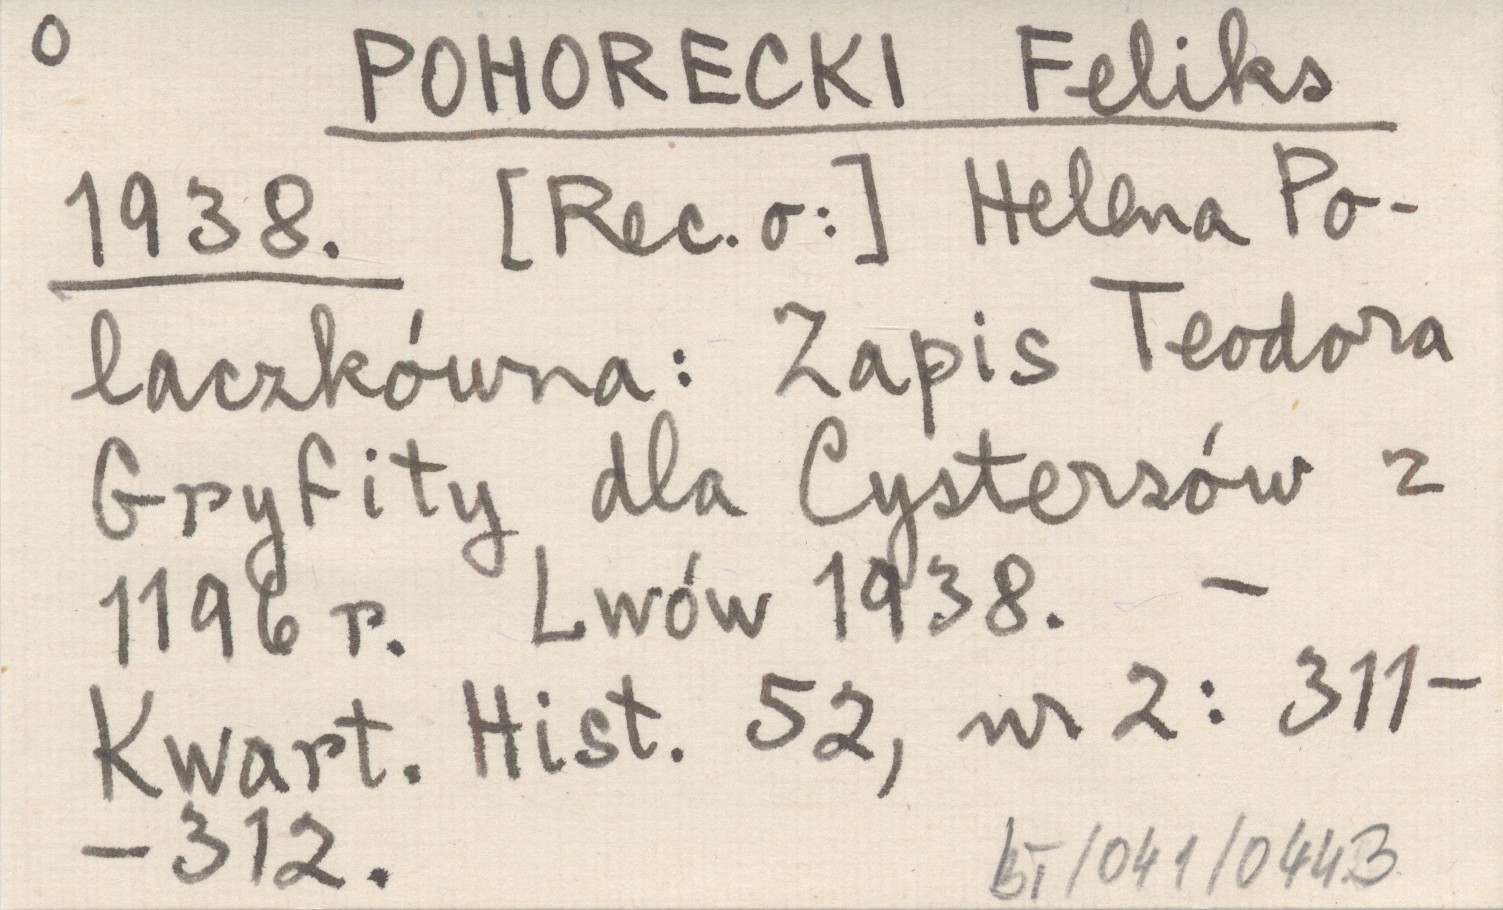 O
POHORECKI Feliks
1938. [Rec. o:] Helena Po-
laczkówna: Zapis Teodora
Gryfity dla Cystersów z
1196 r. Lwów 1938. -
Kwart. Hist. 52, nr 2: 311-
-312.
/041/0443